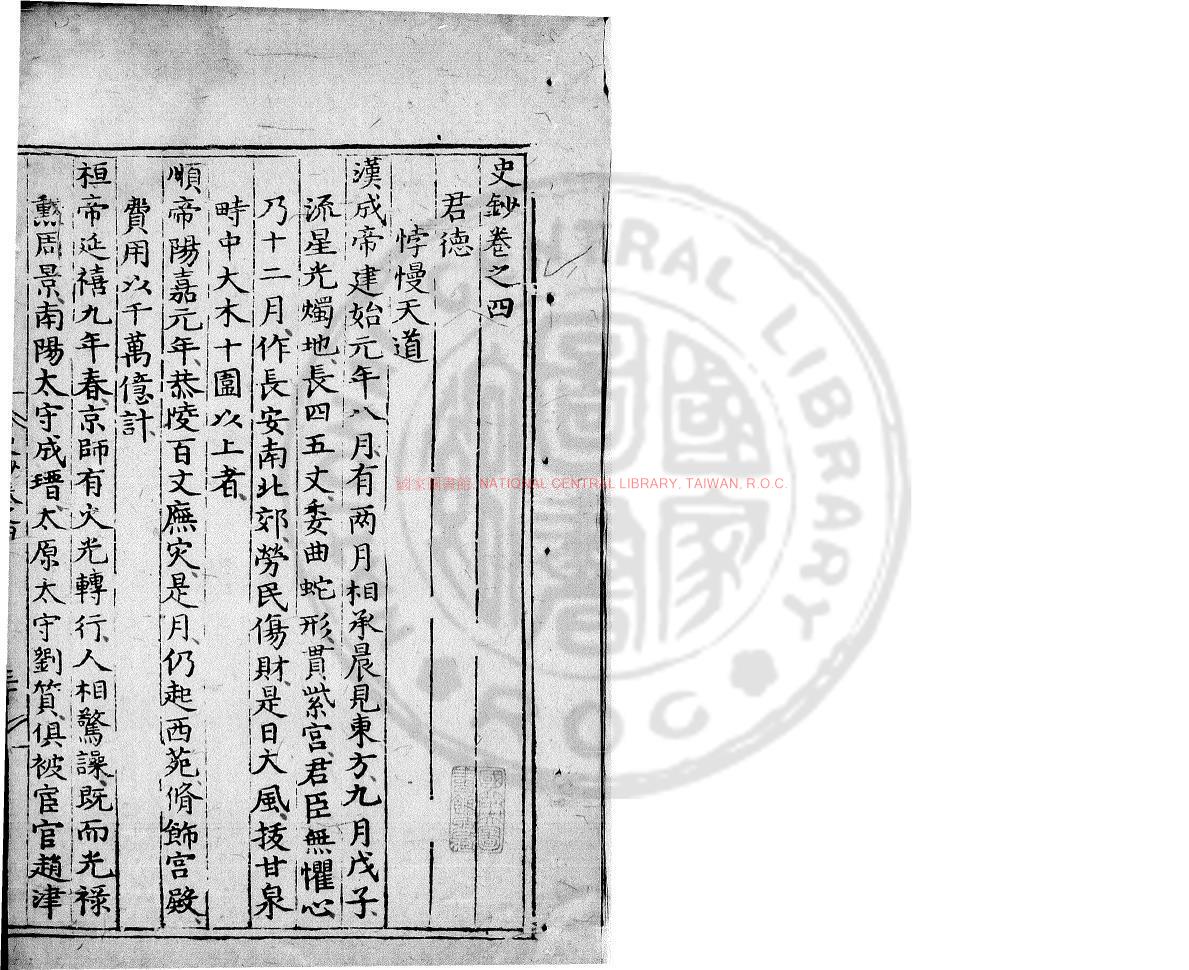 史鈔卷之四
君德
悖慢天道
漢成帝建始元年八月、有两月相承晨見東方、九月戊子、
流星光燭地、長四五丈、委曲蛇形、貫紫宫、君臣無懼心
乃十二月、作長安南北郊、勞民傷財、是日大風、拔甘泉
畤中大木十圍以上者、
順帝陽嘉元年、恭陵百丈廡灾、是月、仍起西苑、脩飾宫殿、
費用以千萬億計、
桓帝延禧九年春、京師有火光轉行、人相驚譟、既而光禄
勲周景、南陽太守成瑨、太原太守劉質、俱被宦官趙津
國家圖書館, NATIONAL CENTRAL LIBRARY, TAIWAN, R.O.C.